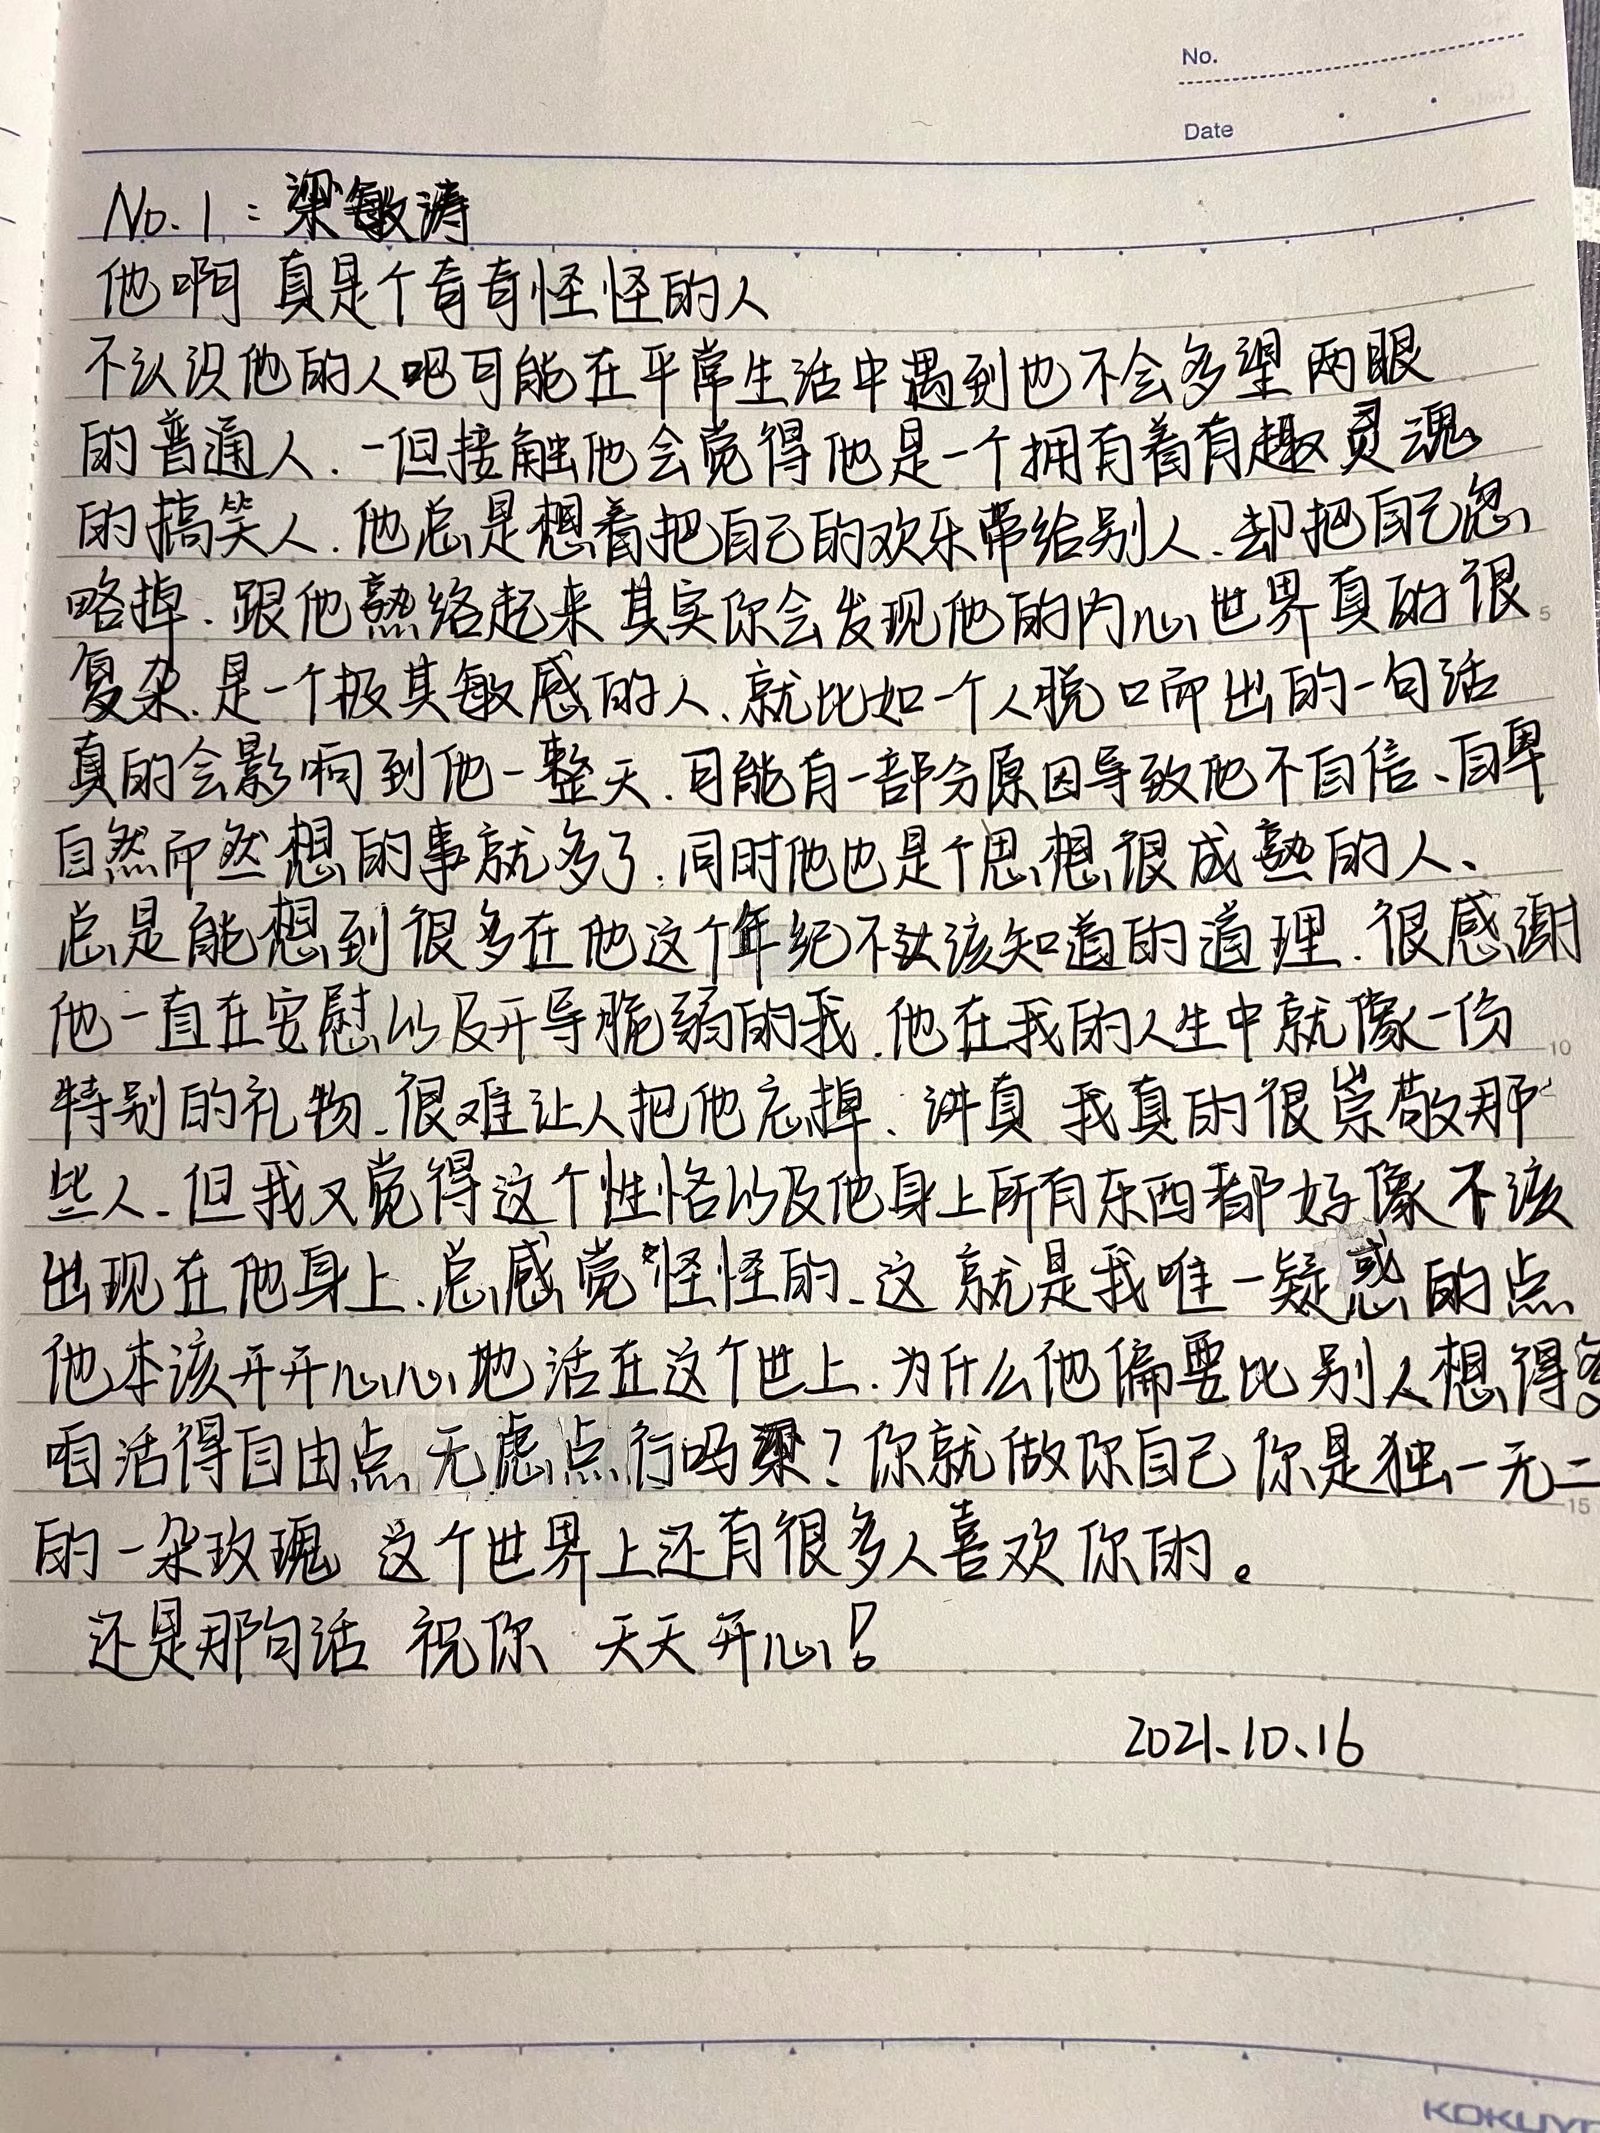 No.
Date
No.1：梁敏涛
他啊 真是个奇奇怪怪的人
不认识他的人吧可能在平常生活中遇到也不会多望两眼
的普通人.一但接触他会觉得他是一个拥有着有趣灵魂
的搞笑人.他总是想着把自己的欢乐带给别人、却把自己忽
略掉.跟他熟络起来 其实你会发现他的内心世界真的很
复杂.是一个极其敏感的人、就比如一个人脱口而出的一句话
真的会影响到他一整天.可能有一部分原因导致他不自信、自卑
自然而然想的事就多了.同时他也是个思想很成熟的人、
总是能想到很多在他这个年纪不该知道的道理.很感谢
他一直在安慰以及开导脆弱的我.他在我的人生中就像一份
特别的礼物、很难让人把他忘掉、讲真 我真的很崇敬那
些人、但我又觉得这个性格以及他身上所有东西都好像不该
出现在他身上、总感觉怪怪的、这就是我唯一疑惑的点
他本该开开心心地活在这个世上.为什么他偏要比别人想得多
咱活得自由点 无虑点行吗梁？你就做你自己 你是独一无二
的一朵玫瑰 这个世界上还有很多人喜欢你的。
还是那句话 祝你 天天开心！
2021.10.16
5
10
15